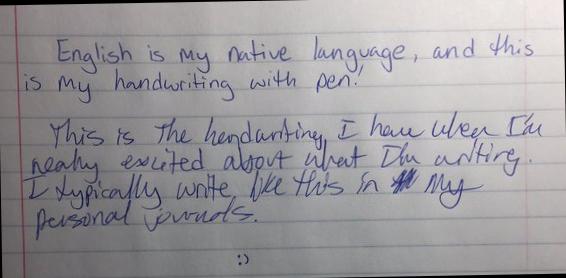 English is my native language, and this
is my handwriting with pen!
This is the handwriting I have when I'm
really excited about what I'm writing.
I typically write like this in my
personal journals.
:)